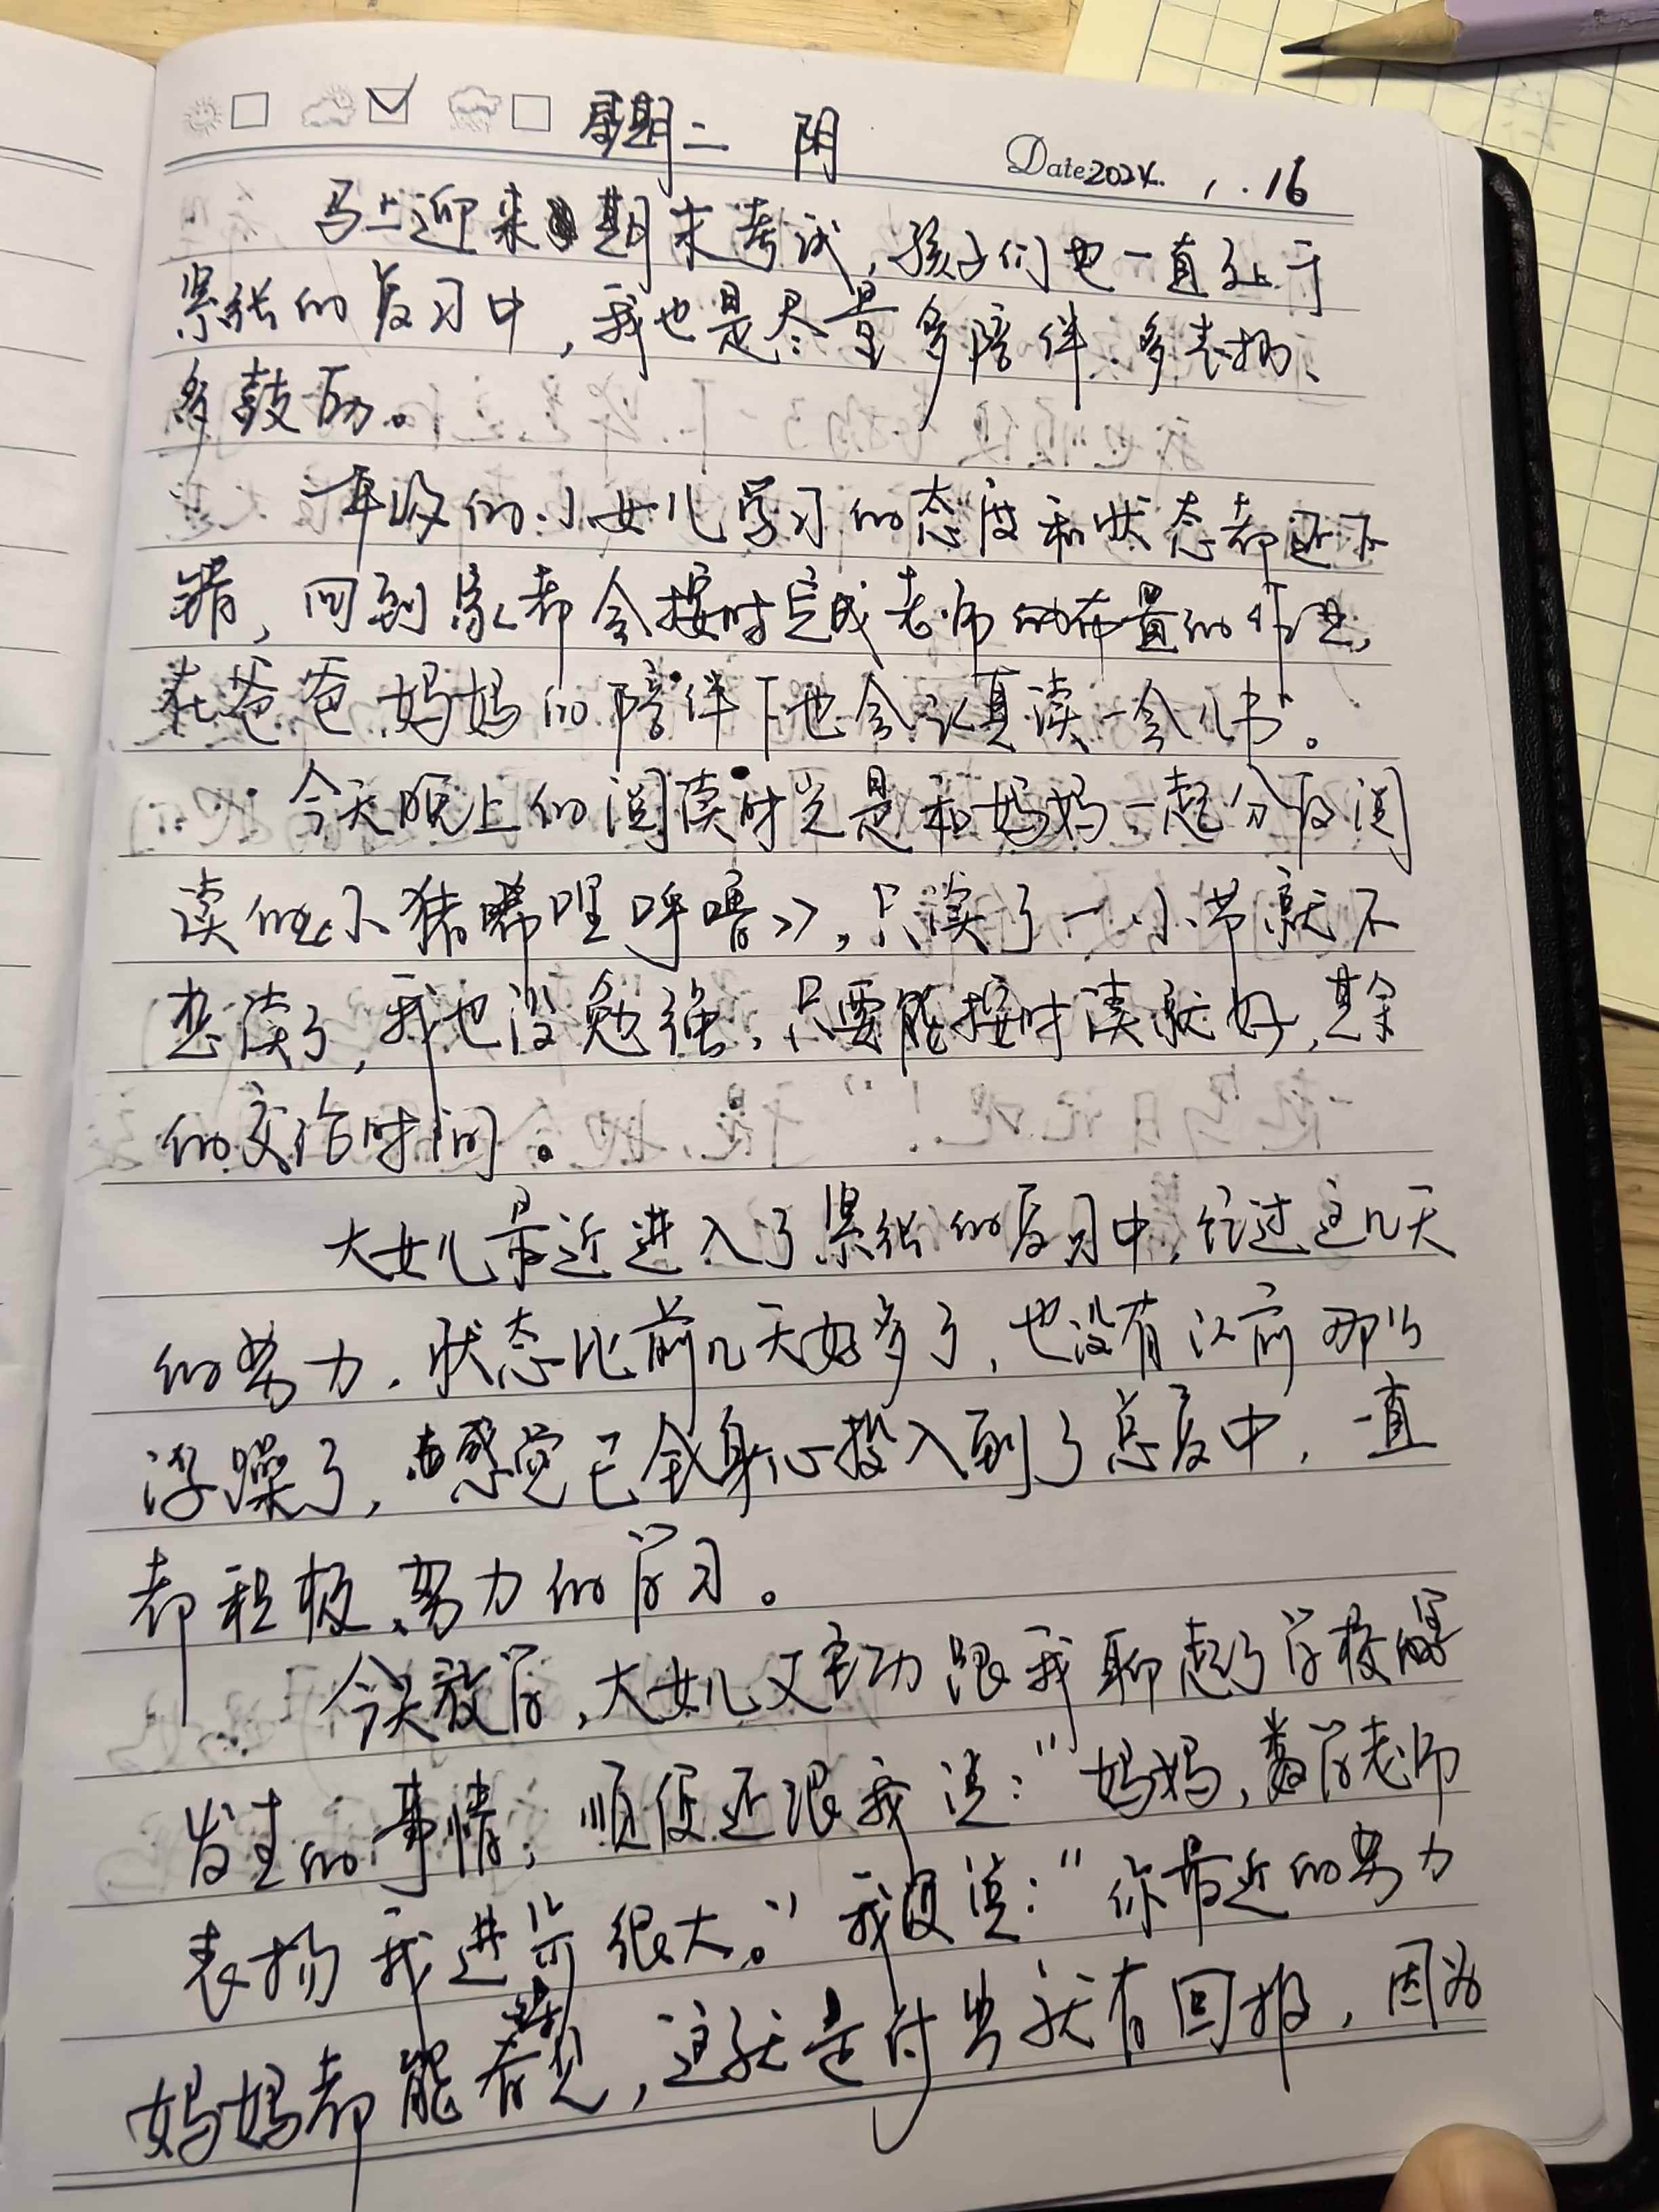 星期二 阴 Date 2024. 1. 16
马上迎来期末考试,孩子们也一直处于
紧张的复习中,我也是尽量多陪伴、多表扬、
多鼓励。
一年级的小女儿学习的态度和状态都还不
错,回到家都会按时完成老师的布置的作业,
在爸爸妈妈的陪伴下也会认真读一会儿书。
今天晚上的阅读时光是和妈妈一起分段阅
读的《小猪唏哩呼噜》,只读了一小节就不
想读了,我也没勉强,只要能按时读就好,其余
的交给时间。
大女儿最近进入了紧张的复习中,经过这几天
的努力,状态比前几天好多了,也没有以前那么
浮躁了,感觉已全身心投入到了总复中,一直
都积极、努力的学习。
今天放学,大女儿又主动跟我聊起了学校
发生的事情,顺便还跟我说:“妈妈,数学老师
表扬我进步很大。”我便说:“你最近的努力
妈妈都能看见,这就是付出就有回报,因为